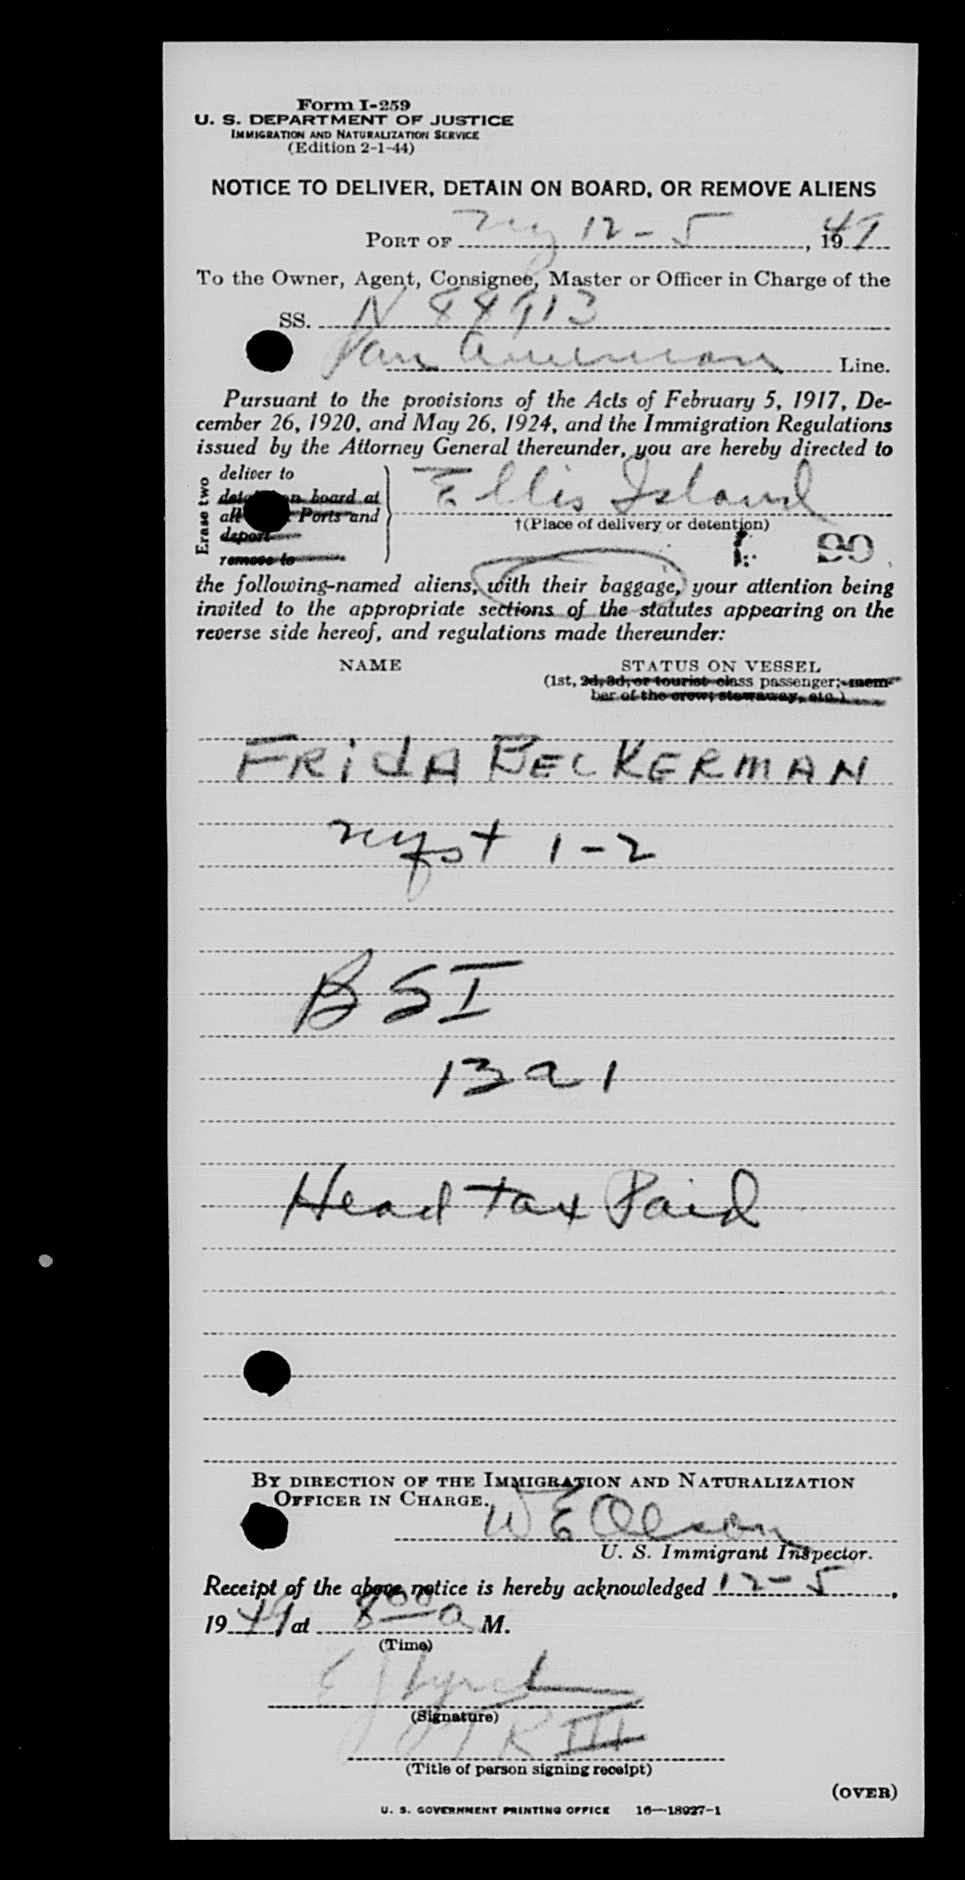 Form I-259
U. S. DEPARTMENT OF JUSTICE
IMMIGRATION AND NATURALIZATION SERVICE
(Edition 2-1-44)
NOTICE TO DELIVER, DETAIN ON BOARD, OR REMOVE ALIENS
PORT OF NY 12-5, 1949
To the Owner, Agent, Consignee, Master or Officer in Charge of the
SS. N 88913
Pan American Line.
Pursuant to the provisions of the Acts of February 5, 1917, De-
cember 26, 1920, and May 26, 1924, and the Immigration Regulations
issued by the Attorney General thereunder, you are hereby directed to
Erase two
deliver to
on board at
Ports and
deport
remove to
Ellis Island
†(Place of delivery or detention)
90
the following-named aliens, with their baggage, your attention being
invited to the appropriate sections of the statutes appearing on the
reverse side hereof, and regulations made thereunder:
NAME STATUS ON VESSEL
(1st, 2d, 3d, or tourist class passenger; mem-
ber of the crew; stowaway, etc.)
FRIDA BECKERMAN
1-2
BSI
1321
Head tax Paid
BY DIRECTION OF THE IMMIGRATION AND NATURALIZATION
OFFICER IN CHARGE.
W E Olson
U. S. Immigrant Inspector.
Receipt of the above notice is hereby acknowledged 12-5,
1949, at 8 00 a M.
(Time)
E J Lynch
(Signature)
III
(Title of person signing receipt)
(OVER)
U. S. GOVERNMENT PRINTING OFFICE 16—18927-1